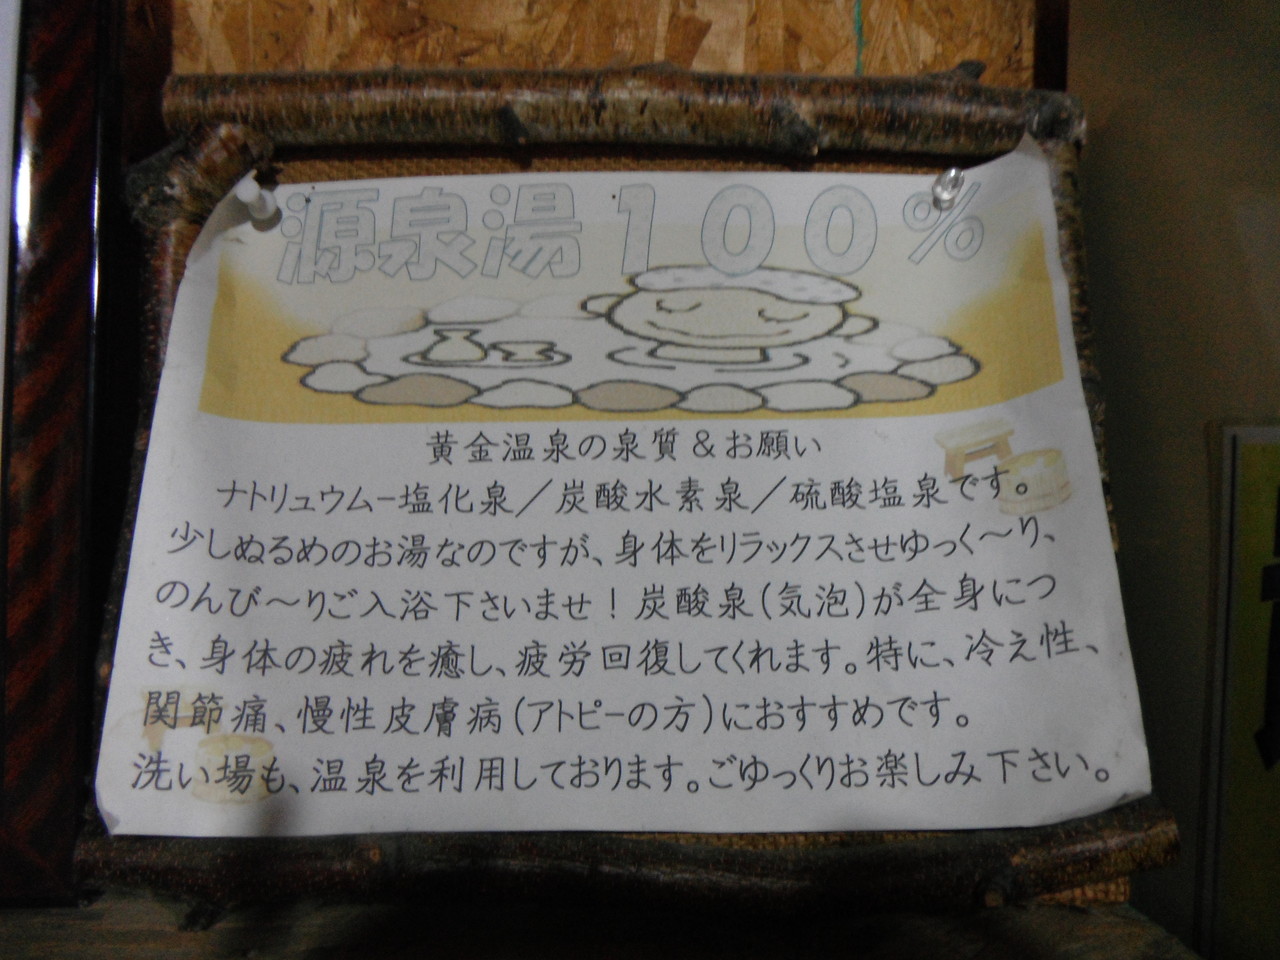 源泉湯100%
黄金温泉の泉質＆お願い
ナトリュウムー塩化泉／炭酸水素泉／硫酸塩泉です。
少しぬるめのお湯なのですが、身体をリラックスさせゆっく〜り、
のんび〜りご入浴下さいませ！炭酸泉(気泡)が全身につ
き、身体の疲れを癒し、疲労回復してくれます。特に、冷え性、
関節痛、慢性皮膚病(アトピーの方)におすすめです。
洗い場も、温泉を利用しております。ごゆっくりお楽しみ下さい。